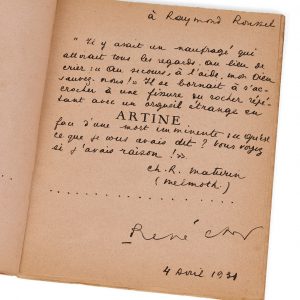 à Raymond Roussel
" Il y avait un naufragé qui
attirait tous les regards. Au lieu de
crier : « Au secours, à l'aide, mon Dieu
sauvez-nous ! » Il se bornait à s'ac-
crocher à une fissure du rocher répé-
tant avec un orgueil étrange en
ARTINE
face d'une mort imminente : « Qu'est
ce que je vous avais dit ? Vous voyez
si j'avais raison ! ».
Ch. R. Maturin
(Melmoth.)
René Char
4 avril 1931